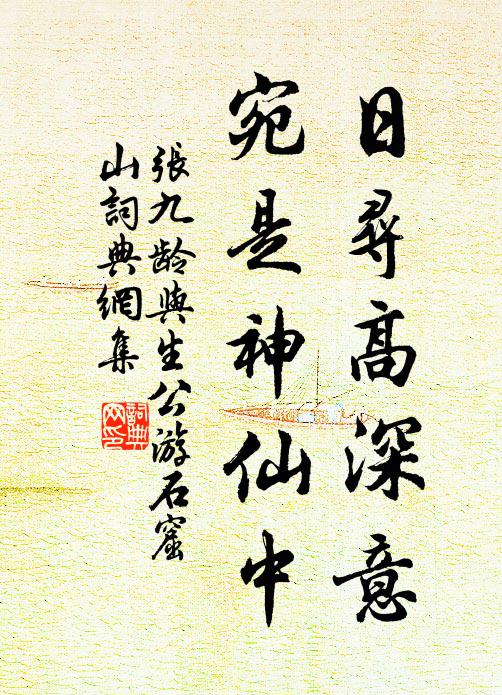 日尋高深意
宛是神仙中
張九齡與生公游石窟
山詞典網集
詞典網印